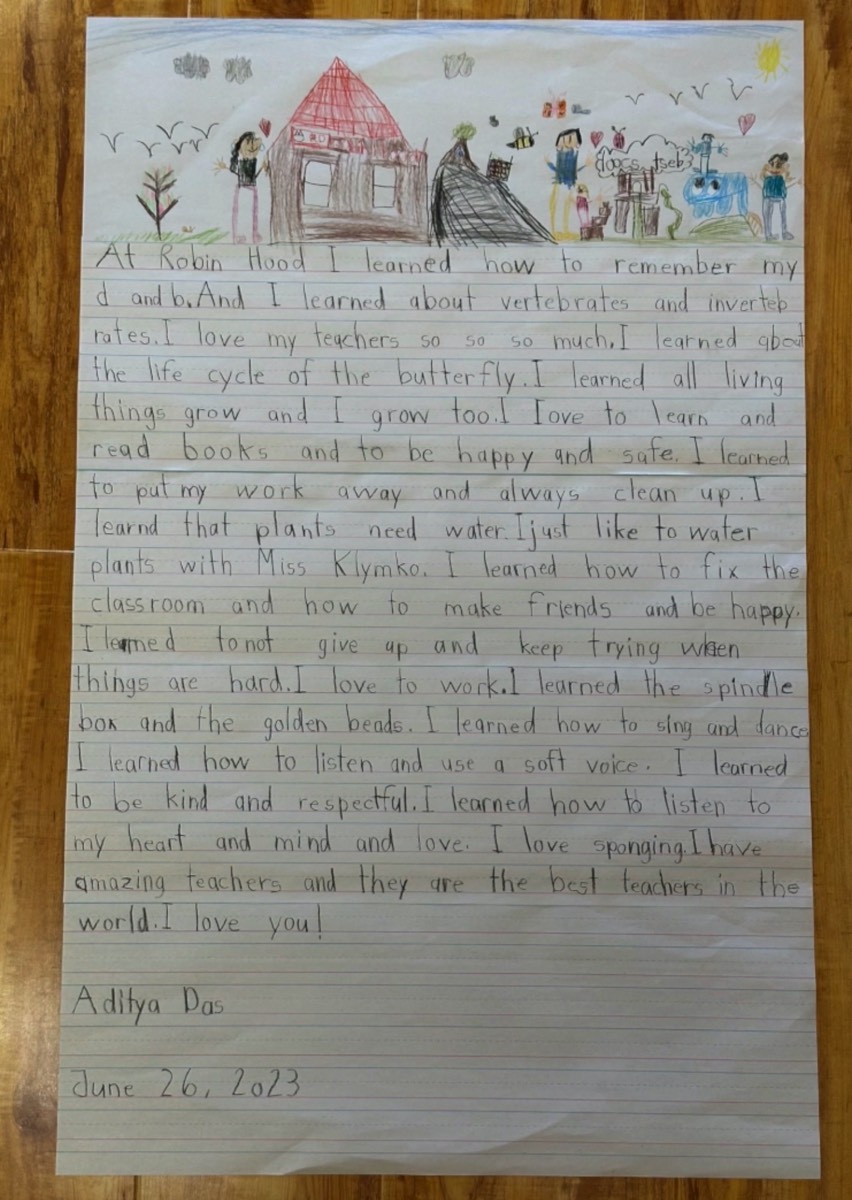 At Robin Hood I learned how to remember my
d and b. And I learned about vertebrates and inverteb
rates. I love my teachers so so so much. I learned about
the life cycle of the butterfly. I learned all living
things grow and I grow too. I love to learn and
read books and to be happy and safe. I learned
to put my work away and always clean up. I
learnd that plants need water. I just like to water
plants with Miss Klymko. I learned how to fix the
classroom and how to make friends and be happy.
I learned to not give up and keep trying when
things are hard. I love to work. I learned the spindle
box and the golden beads. I learned how to sing and dance
I learned how to listen and use a soft voice. I learned
to be kind and respectful. I learned how to listen to
my heart and mind and love. I love sponging. I have
amazing teachers and they are the best teachers in the
world. I love you!
Aditya Das
June 26, 2023